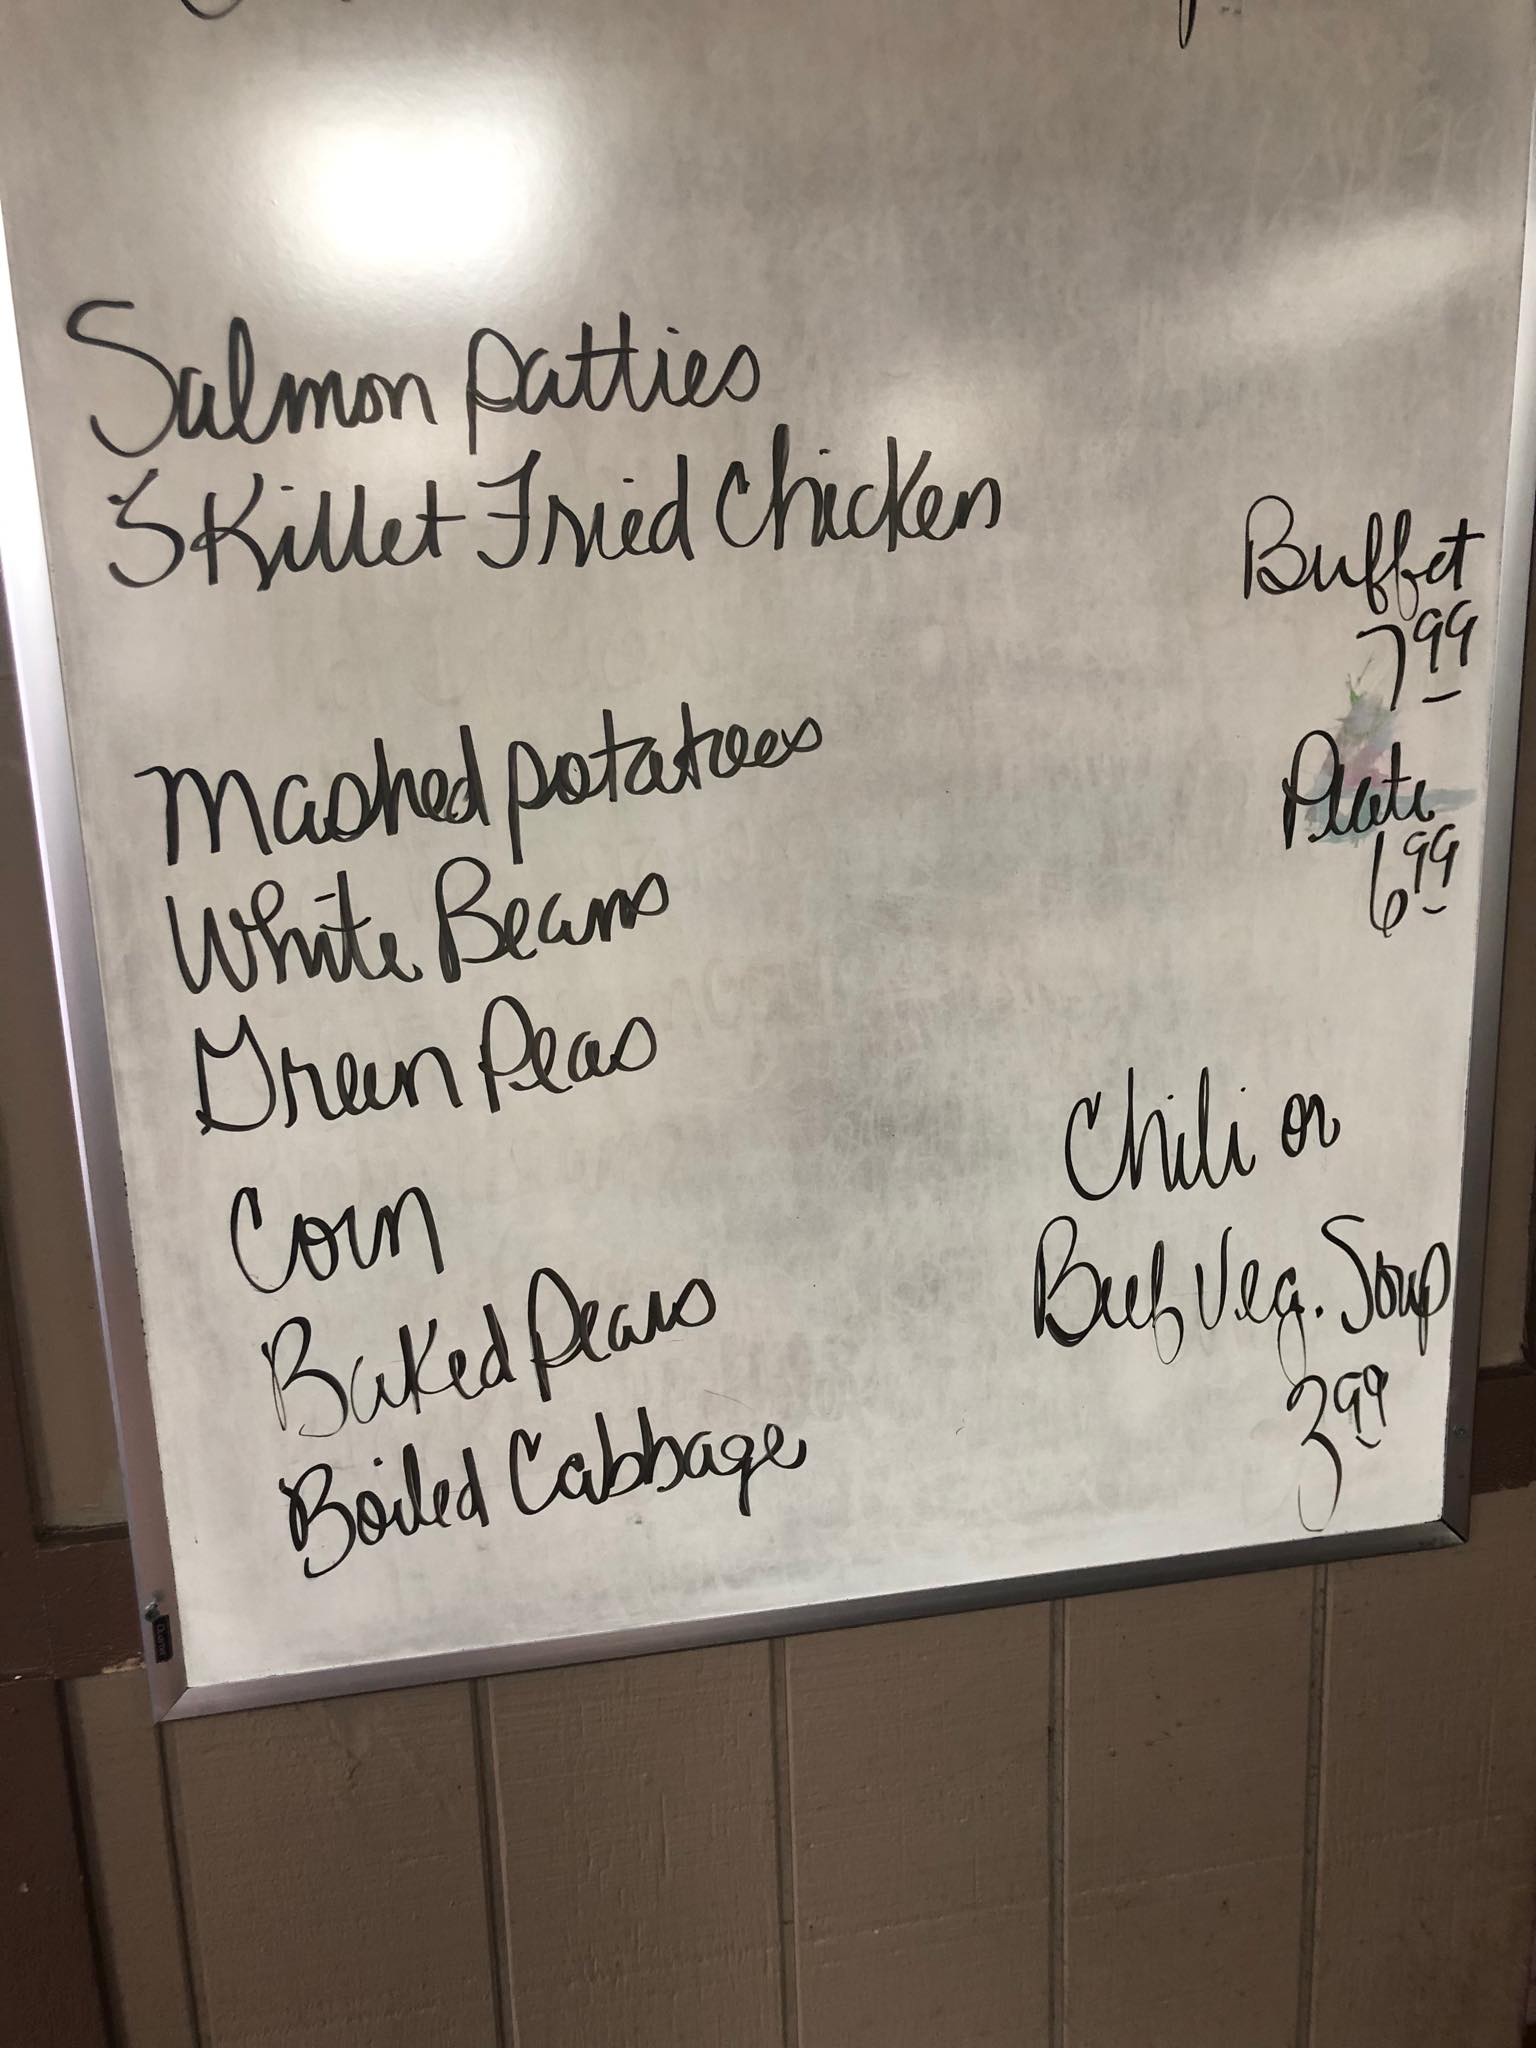 Salmon patties
Skillet Fried Chicken
Mashed potatoes
White Beans
Green Peas
Corn
Baked Pears
Boiled Cabbage
Buffet
7.99
Plate
6.99
Chili or
Beef Veg. Soup
3.99
Quartet